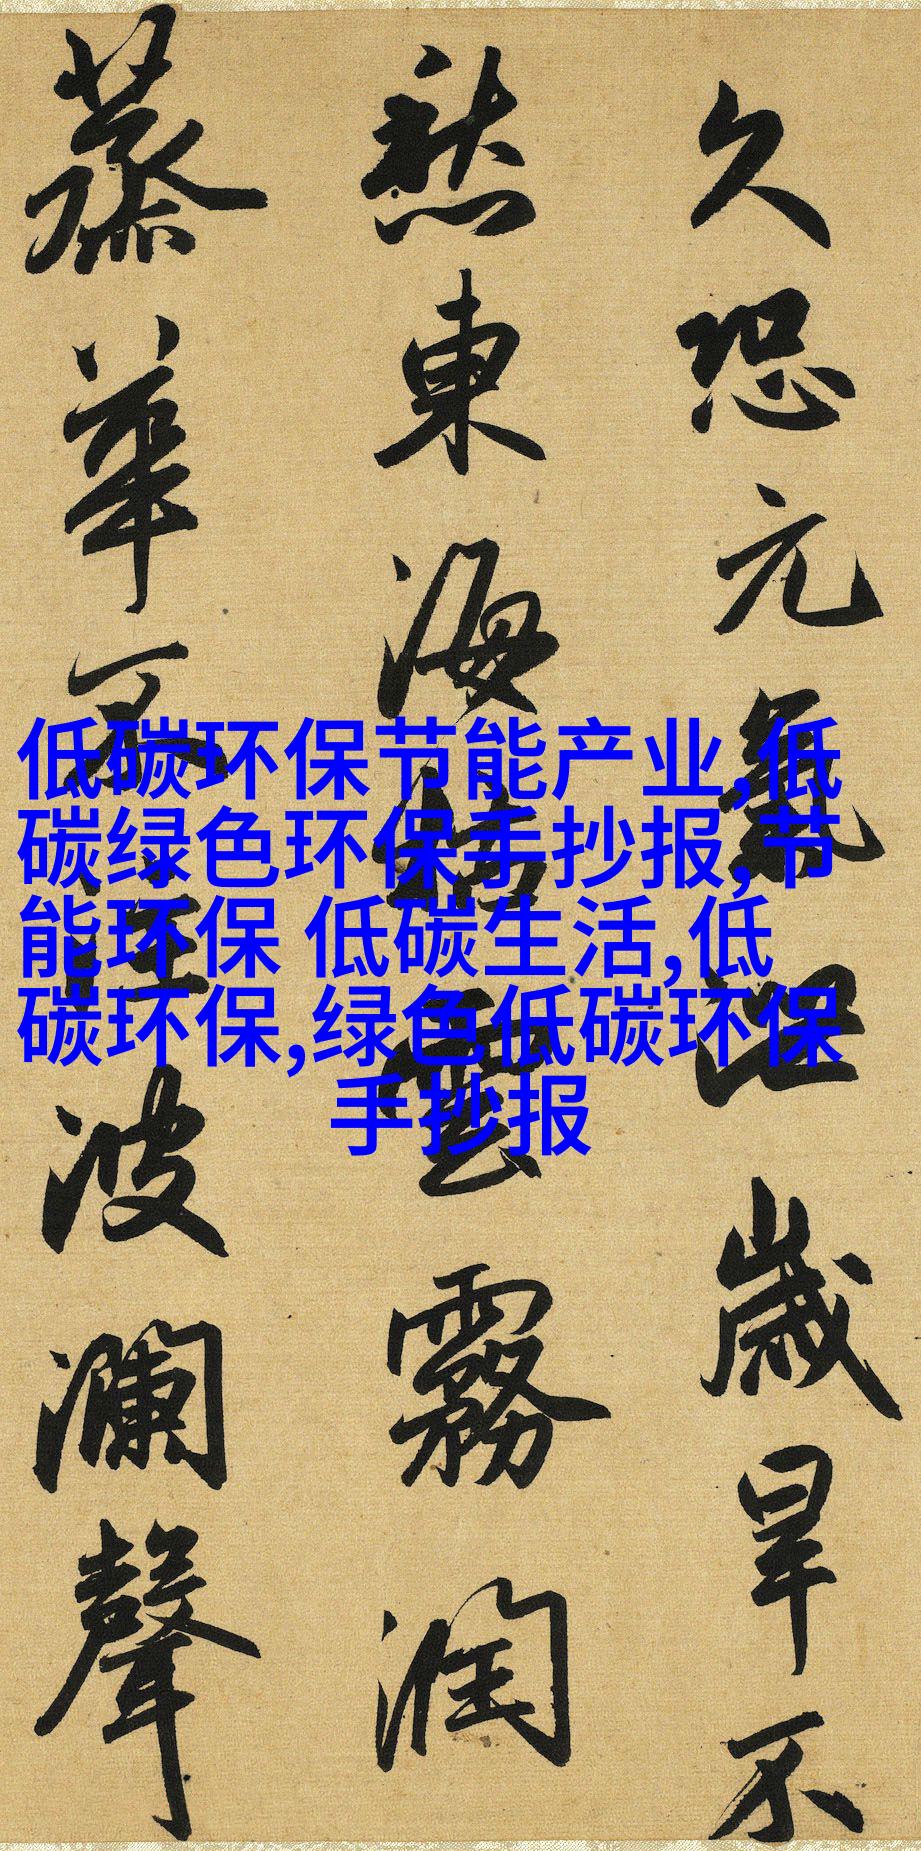 久恐元氣泄歲旱不
愁東海枯雲霧潤
蒸華不注波瀾聲
低碳环保节能产业,低
碳绿色环保手抄报,节
能环保 低碳生活,低
碳环保,绿色低碳环保
手抄报